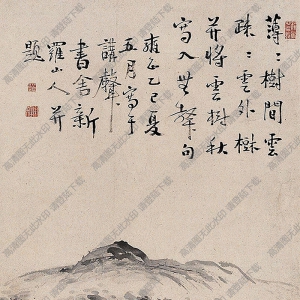 薄〻樹間雲
疎〻雲外樹
并將雲樹秋
寫入無聲句
雍正乙巳夏
五月寫于
講聲
書舍新
羅山人并
題